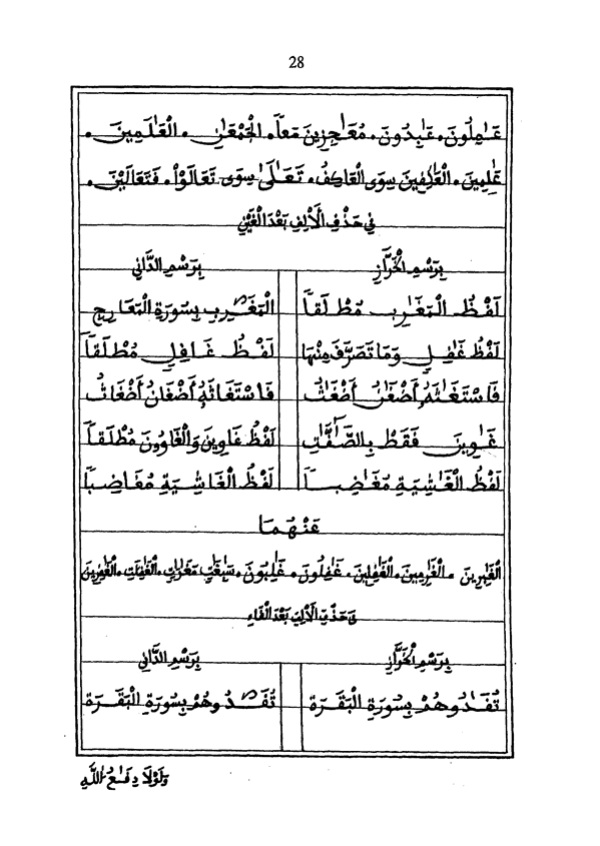 28
عَٰمِلُونَ. عَٰبِدُونَ. مُعَٰجِزِينَ مَعاً. الْجَمْعَٰنِ. الْعَٰلَمِينَ.
عَٰلِمِينَ. الْعَٰكِفِينَ سِوَى الْعَاكِفُ. تَعَٰلَىٰ سِوَى تَعَالَوْاْ. فَتَعَالَيْنَ.
فِى حَذْفِ الْأَلِفِ بَعْدَ الْغَيْنِ
بِرَسْمِ الْخَرَّازِ بِرَسْمِ الدَّانِي
لَفْظُ الْمَغَٰرِبِ مُطْلَقاً الْمَغَٰرِبِ بِسُورَةِ الْمَعَارِجِ
لَفْظُ غَٰفِلٍ وَمَا تَصَرَّفَ مِنْهَا لَفْظُ غَافِلٍ مُطْلَقاً
فَاسْتَغَٰثَهُ أَضْغَٰنَ أَضْغَٰثُ فَاسْتَغَاثَهُ أَضْغَانُ أَضْغَاثُ
غَٰوِينَ فَقَطْ بِالصَّٰفَّٰتِ لَفْظُ غَاوِينَ وَالْغَاوُونَ مُطْلَقاً
لَفْظُ الْغَٰشِيَةِ مُغَٰضِباً لَفْظُ الْغَاشِيَةِ مُغَاضِباً
عَنْهُمَا
الْغَٰبِرِينَ. الْغَٰرِمِينَ. الْغَٰفِلِينَ. غَٰفِلُونَ. غَٰلِبُونَ. سَٰبِغَٰتٍ. مَغَٰرَٰتٍ.
فِى حَذْفِ الْأَلِفِ بَعْدَ الْفَاءِ
بِرَسْمِ الْخَرَّازِ بِرَسْمِ الدَّانِي
تُفَٰدُوهُمْ بِسُورَةِ الْبَقَرَةِ تُفَٰدُوهُمْ بِسُورَةِ الْبَقَرَةِ
وَلَوْلَا دِفَٰعُ اللَّهِ